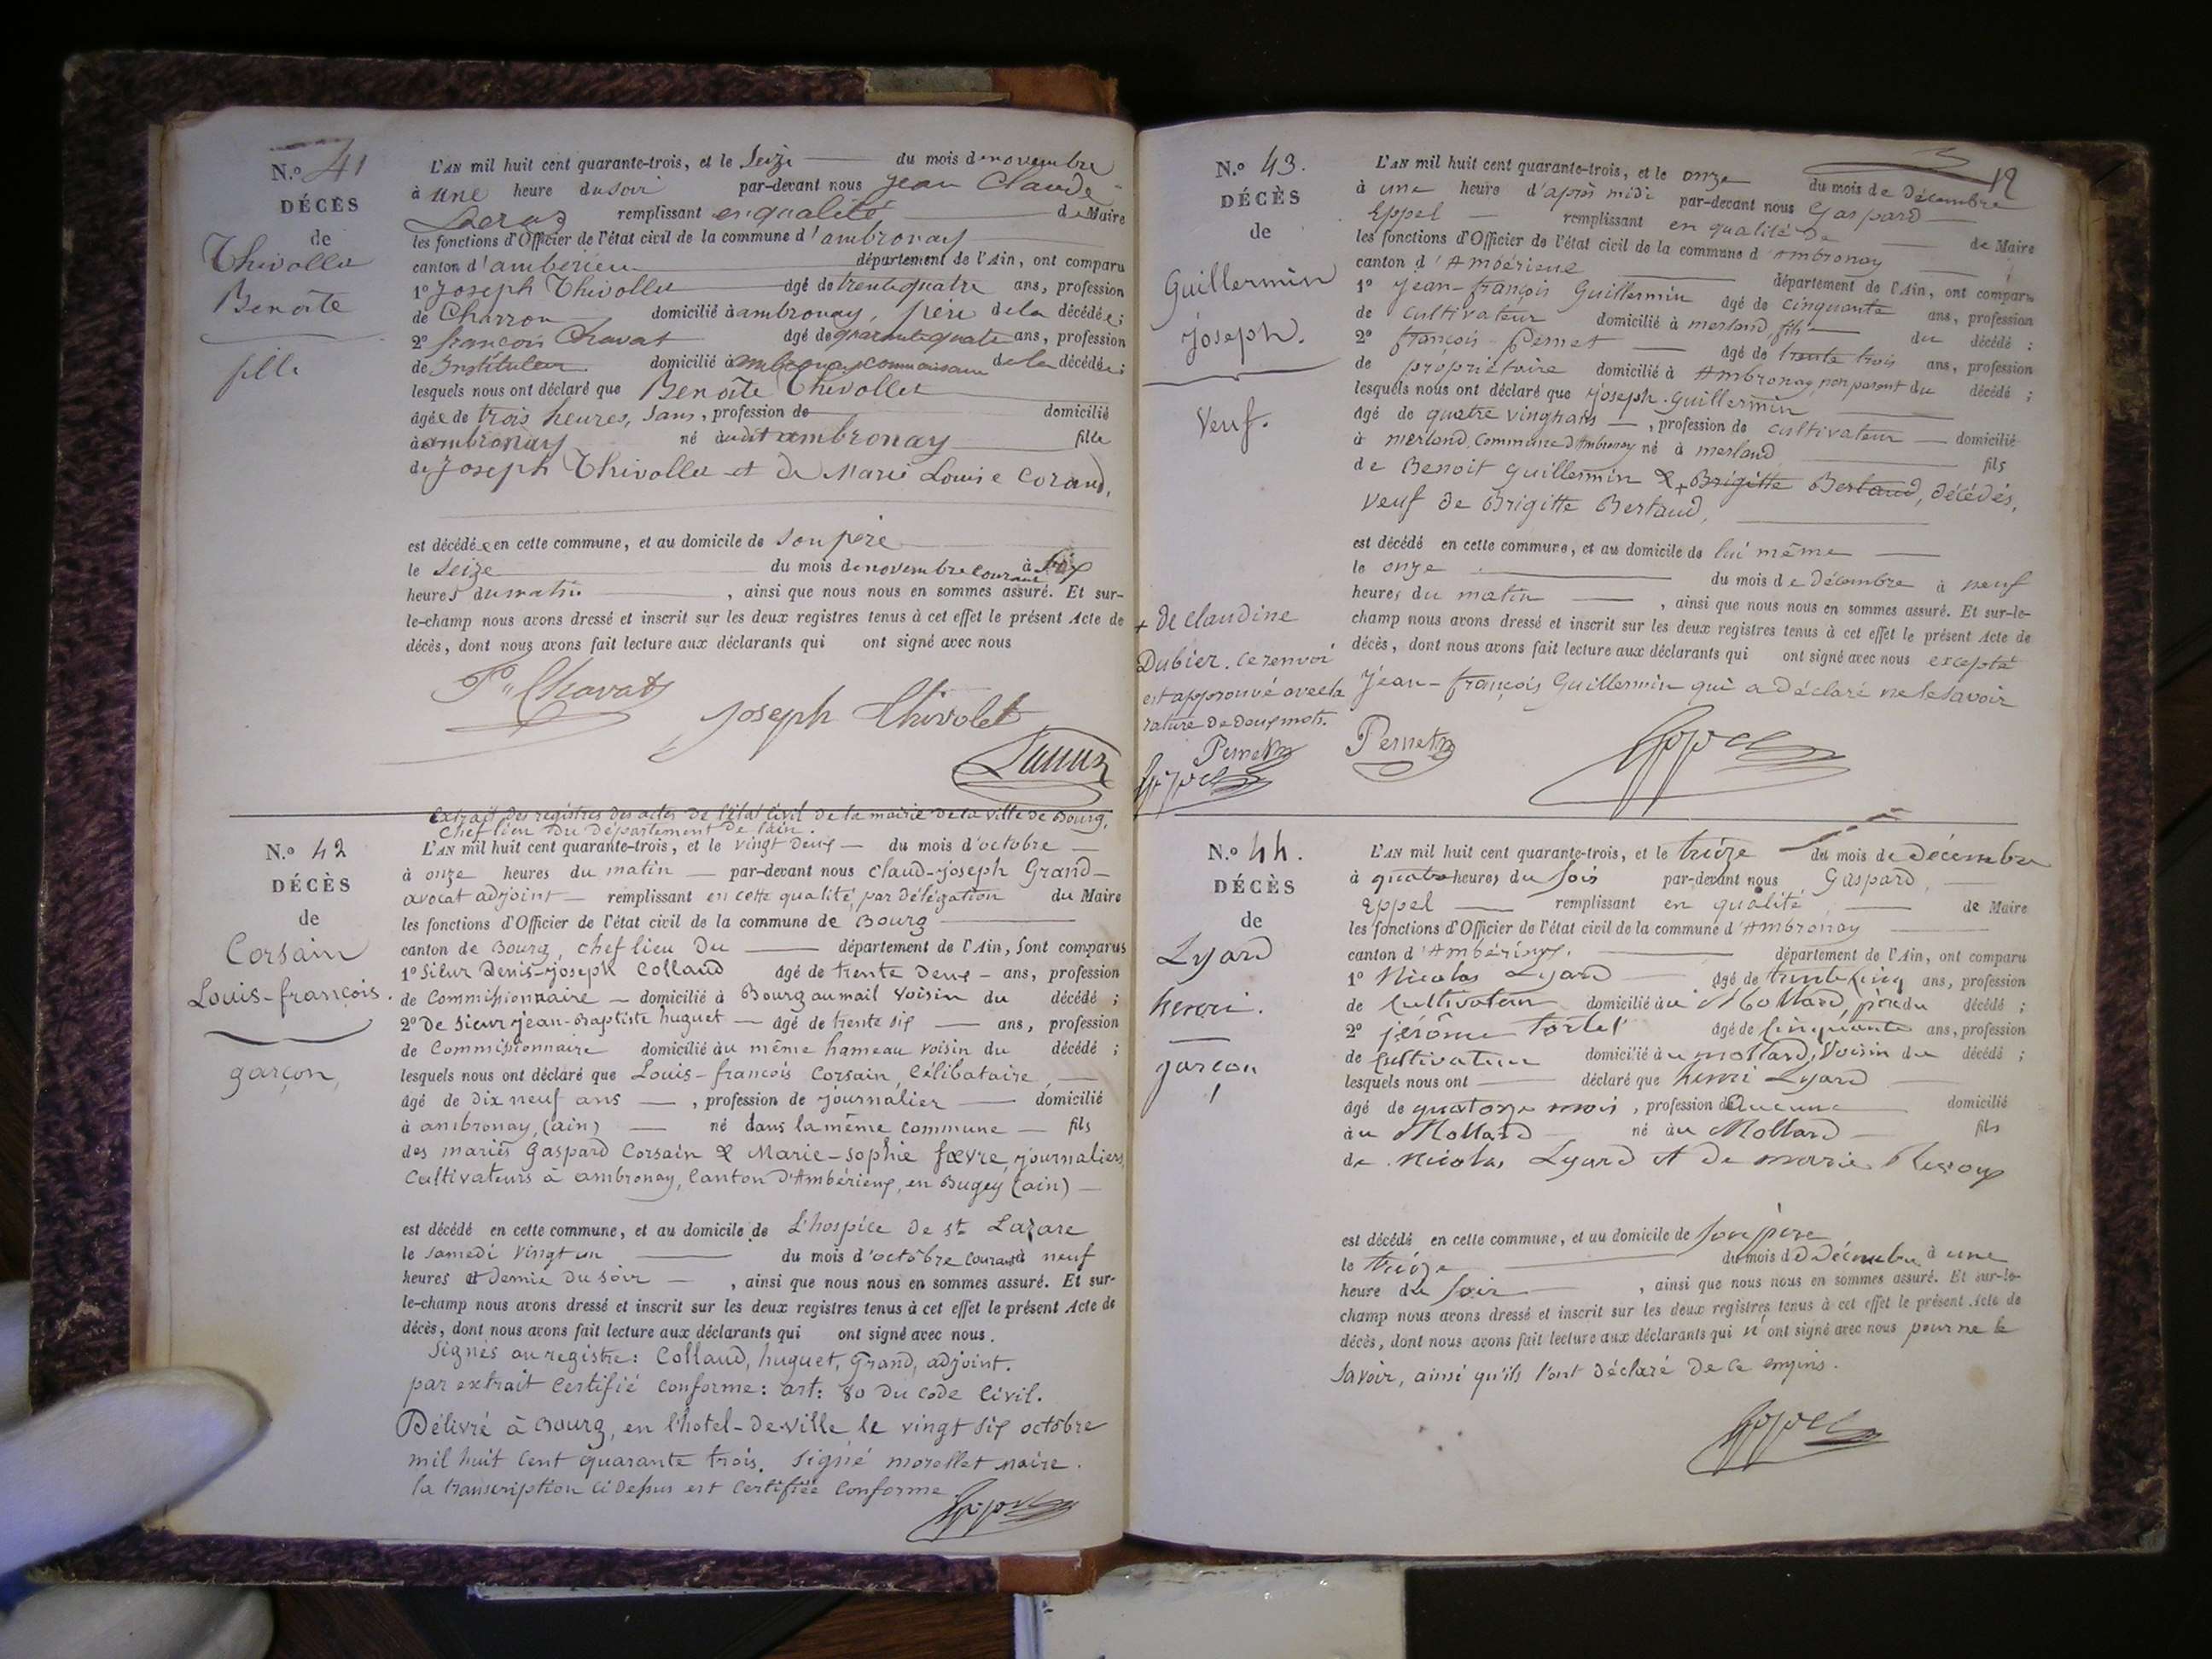 N.º 41
DÉCÈS
de
Thivollet
Benoîte
fille
L'AN mil huit cent quarante-trois, et le Seize du mois de novembre
à une heure du soir par-devant nous Jean Claude
remplissant en qualité de Maire
les fonctions d'Officier de l'état civil de la commune d'ambronay
canton d'amberieu département de l'Ain, ont comparu
1º Joseph Thivollet âgé de trente quatre ans, profession
de Charron domicilié à ambronay, père de la décédée;
2º françois Chavat âgé de quarante quatre ans, profession
de Instituteur domicilié à ambronay connaissance de la décédée;
lesquels nous ont déclaré que Benoîte Thivollet
âgée de trois heures, sans, profession de domicilié
à ambronay né audit ambronay fille
de Joseph Thivollet et de Marie Louise Corand,
est décédée en cette commune, et au domicile de son père
le seize du mois de novembre courant à six
heures du matin, ainsi que nous nous en sommes assuré. Et sur-
le-champ nous avons dressé et inscrit sur les deux registres tenus à cet effet le présent Acte de
décès, dont nous avons fait lecture aux déclarants qui ont signé avec nous
F. Chavat
Joseph Thivolet
Extrait des registres des actes de l'état civil de la mairie de la ville de Bourg,
chef lieu du département de l'ain.
N.º 42
DÉCÈS
de
Corsain
Louis-françois.
garçon,
L'AN mil huit cent quarante-trois, et le vingt deux du mois d'octobre
à onze heures du matin par-devant nous Claud-joseph Grand
avocat adjoint remplissant en cette qualité, par délégation du Maire
les fonctions d'Officier de l'état civil de la commune de Bourg
canton de Bourg, chef lieu du département de l'Ain, sont comparus
1º Sieur Denis-joseph Collaud âgé de trente deux ans, profession
de Commissionnaire domicilié à Bourg au mail voisin du décédé;
2º De sieur jean-Baptiste huguet âgé de trente six ans, profession
de Commissionnaire domicilié au même hameau voisin du décédé;
lesquels nous ont déclaré que Louis-françois Corsain, célibataire,
âgé de dix neuf ans, profession de journalier domicilié
à ambronay, (ain) né dans la même commune fils
des mariés Gaspard Corsain & Marie-Sophie foevre, journaliers,
Cultivateurs à ambronay, Canton d'Ambérieux, en Bugey (ain)
est décédé en cette commune, et au domicile de L'hospice de St Lazare
le samedi vingt un du mois d'octobre courant à neuf
heures et demie du soir, ainsi que nous nous en sommes assuré. Et sur-
le-champ nous avons dressé et inscrit sur les deux registres tenus à cet effet le présent Acte de
décès, dont nous avons fait lecture aux déclarants qui ont signé avec nous.
Signés au registre: Collaud, huguet, Grand, adjoint.
par extrait certifié conforme: art: 80 du code civil.
Délivré à Bourg, en l'hotel-de-ville le vingt six octobre
mil huit cent quarante trois. signé morellet maire.
la transcription ci dessus est certifiée conforme
Eppel
12
N.º 43.
DÉCÈS
de
Guillermin
joseph.
Veuf.
L'AN mil huit cent quarante-trois, et le onze du mois de Décembre
à une heure d'après midi par-devant nous Gaspard
Eppel remplissant en qualité de de Maire
les fonctions d'Officier de l'état civil de la commune d'Ambronay
canton d'Ambérieux département de l'Ain, ont comparu
1º Jean-françois Guillermin âgé de cinquante ans, profession
de cultivateur domicilié à merland fils du décédé;
2º françois Pernet âgé de trente trois ans, profession
de propriétaire domicilié à Ambronay, non parent du décédé;
lesquels nous ont déclaré que joseph Guillermin
âgé de quatre vingt ans, profession de cultivateur domicilié
à merland, Commune d'Ambronay né à merland fils
de Benoit Guillermin & + Brigitte Bertaud, décédés,
veuf de Brigitte Bertaud,
est décédé en cette commune, et au domicile de lui même
le onze du mois de Décembre à neuf
heures du matin, ainsi que nous nous en sommes assuré. Et sur-le-
champ nous avons dressé et inscrit sur les deux registres tenus à cet effet le présent Acte de
décès, dont nous avons fait lecture aux déclarants qui ont signé avec nous excepté
Jean-françois Guillermin qui a déclaré ne le savoir
Pernet
Eppel
+ de claudine
Dubier. ce renvoi
est approuvé avec la
rature de deux mots.
Pernet
Eppel
N.º 44.
DÉCÈS
de
Lyard
henri.
garçon
L'AN mil huit cent quarante-trois, et le treize du mois de décembre
à quatre heures du soir par-devant nous Gaspard,
Eppel remplissant en qualité de Maire
les fonctions d'Officier de l'état civil de la commune d'Ambronay
canton d'Ambérieux. département de l'Ain, ont comparu
1º Nicolas Lyard âgé de trente cinq ans, profession
de cultivateur domicilié au Mollard, père du décédé;
2º jérôme tortel âgé de cinquante ans, profession
de cultivateur domicilié au mollard, voisin du décédé;
lesquels nous ont déclaré que henri Lyard
âgé de quatorze mois, profession d'Aucune domicilié
au Mollard né au Mollard fils
de Nicolas Lyard et de marie
est décédé en cette commune, et au domicile de son père
le treize du mois de Décembre à une
heure du soir, ainsi que nous nous en sommes assuré. Et sur-le-
champ nous avons dressé et inscrit sur les deux registres tenus à cet effet le présent Acte de
décès, dont nous avons fait lecture aux déclarants qui n'ont signé avec nous pour ne le
savoir, ainsi qu'ils l'ont déclaré de ce enquis.
Eppel